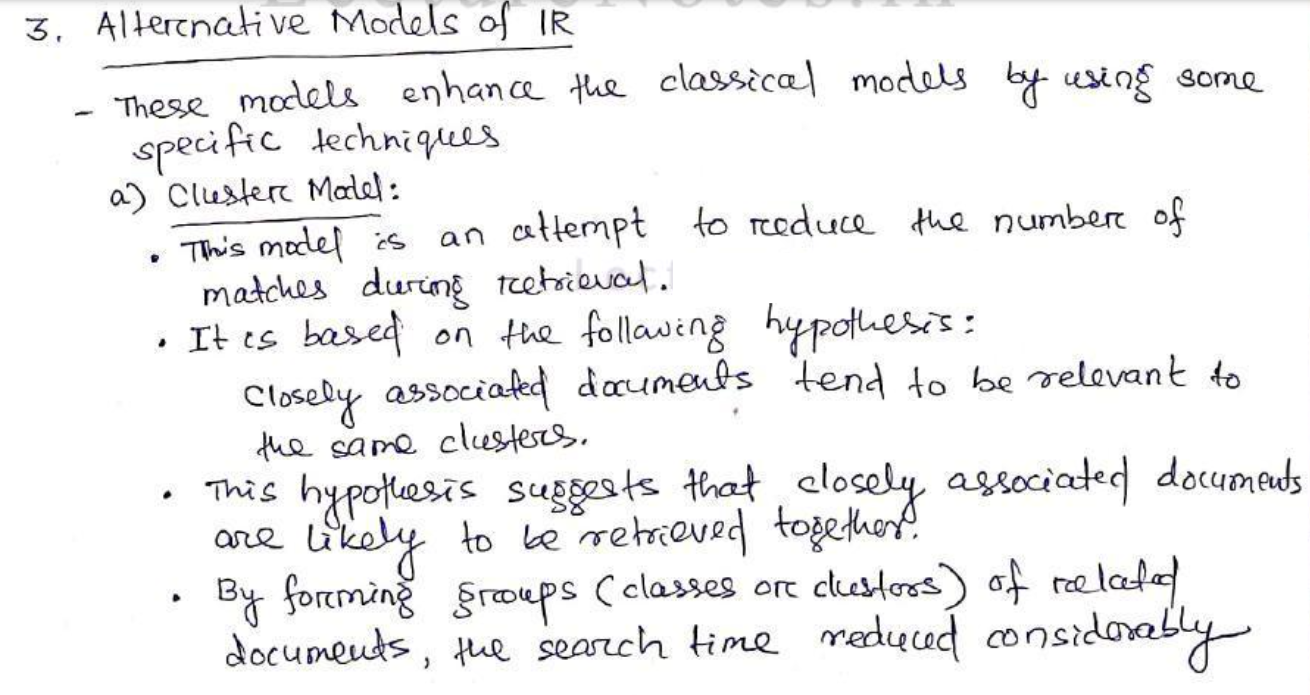 3. Alternative Models of IR
- These models enhance the classical models by using some
specific techniques
a) Cluster Model:
• This model is an attempt to reduce the number of
matches during retrieval.
• It is based on the following hypothesis:
Closely associated documents tend to be relevant to
the same clusters.
• This hypothesis suggests that closely associated documents
are likely to be retrieved together.
• By forming groups (classes or clusters) of related
documents, the search time reduced considerably